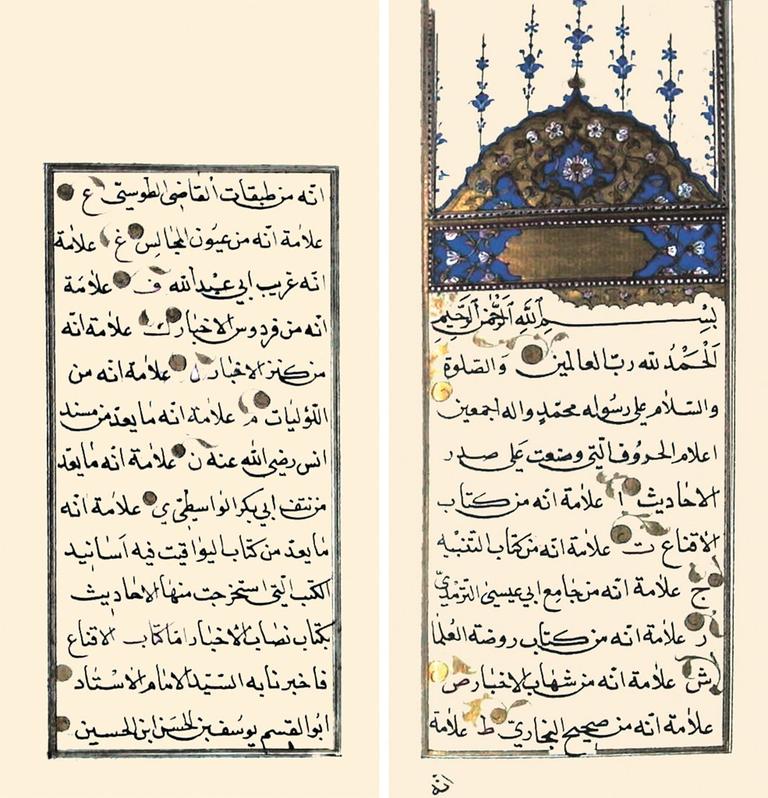 بسم الله الرحمن الرحيم
الحمد لله رب العالمين والصلوة
والسلام على رسوله محمد واله اجمعين
اعلام الحروف التي وضعت على صدر
الاحاديث ا علامة انه من كتاب
الاقناع ت علامة انه من كتاب التنبيه
ج علامة انه من جامع ابي عيسى الترمذي
ر علامة انه من كتاب روضة العلما
ش علامة انه من شهاب الاخبار ص
علامة انه من صحيح البخاري ط علامة
انه
انه من طبقات القاضي الطوسي ع
علامة انه من عيون المجالس غ علامة
انه غريب ابي عبد الله ف علامة
انه من فردوس الاخبار ك علامة انه
من كنز الاخبار ل علامة انه من
اللؤليات م علامة انه ما يعد من مسند
انس رضي الله عنه ن علامة انه ما يعد
من نتف ابي بكر الواسطي ي علامة انه
ما يعد من كتاب اليواقيت فيه اسانيد
الكتب التي استخرجت منها الاحاديث
بكتاب نصاب الاخبار اما كتاب الاقناع
فاخبرنا به السيد الامام الاستاد
ابو القسم يوسف بن الحسن ابن الحسين